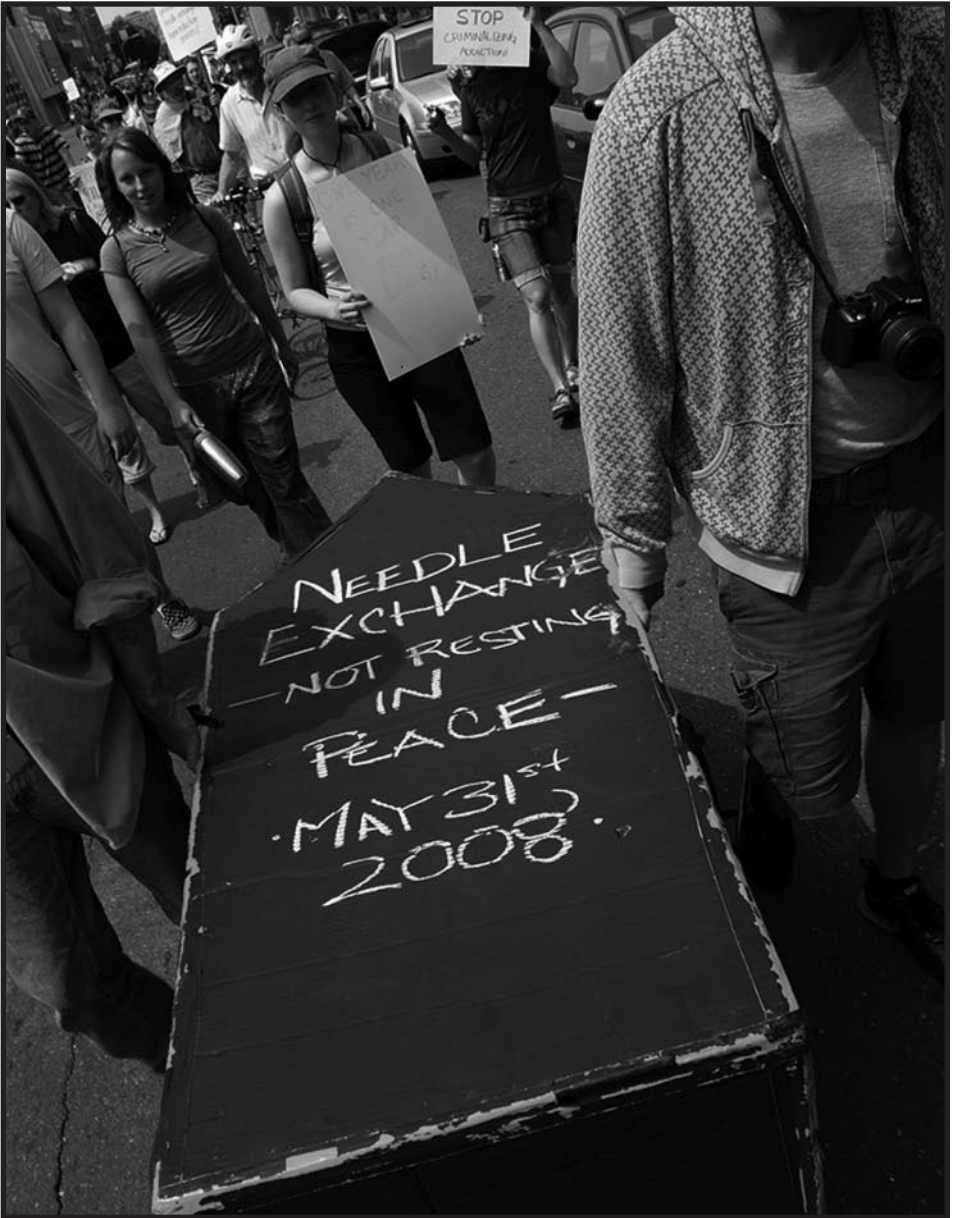 STOP
CRIMINALIZING
ADDICTION!
NEEDLE
EXCHANGE
—NOT RESTING
IN
PEACE—
·MAY 31st
2008·
Canon